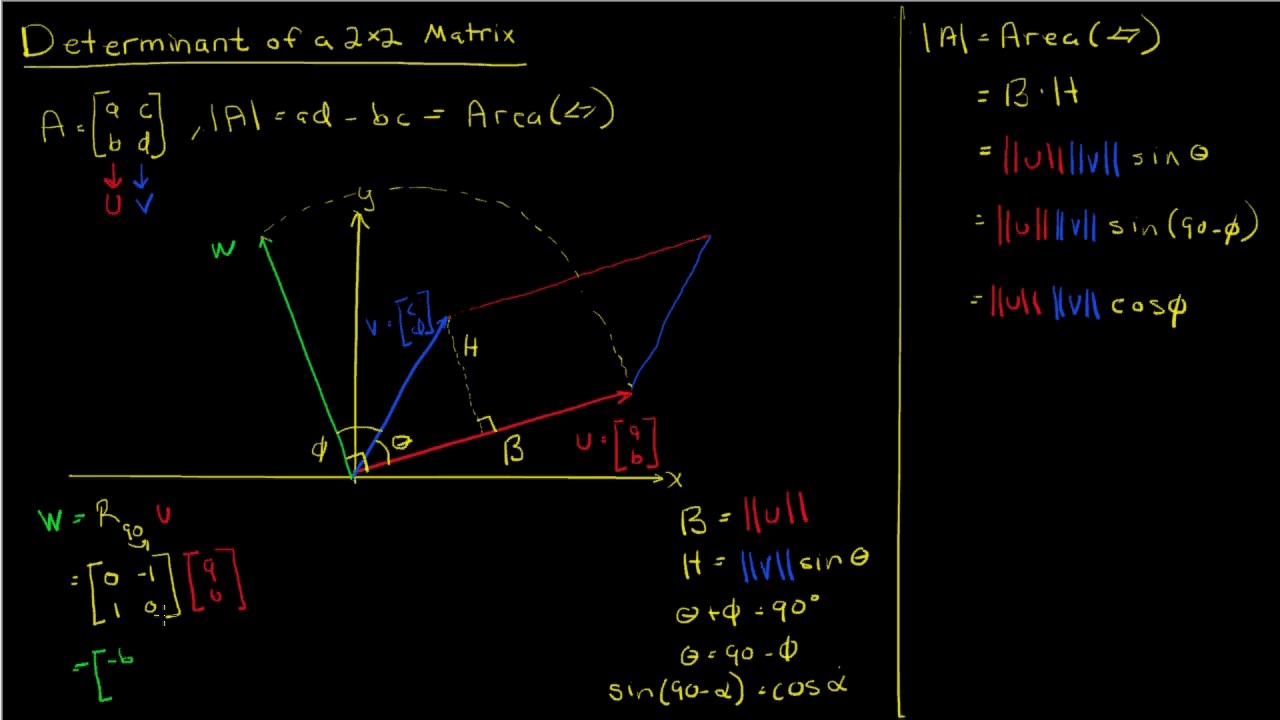 Determinant of a 2×2 Matrix
A = [a c; b d], |A| = ad - bc = Area(▱)
U V
y
W
V = [c d]
H
ϕ θ
B
U = [a b]
x
W = R90 U
= [0 -1; 1 0] [a b]
= [-b
B = ||U||
H = ||V|| sin θ
θ + ϕ = 90°
θ = 90 - ϕ
sin(90-α) = cos α
|A| = Area(▱)
= B · H
= ||U|| ||V|| sin θ
= ||U|| ||V|| sin(90-ϕ)
= ||U|| ||V|| cos ϕ